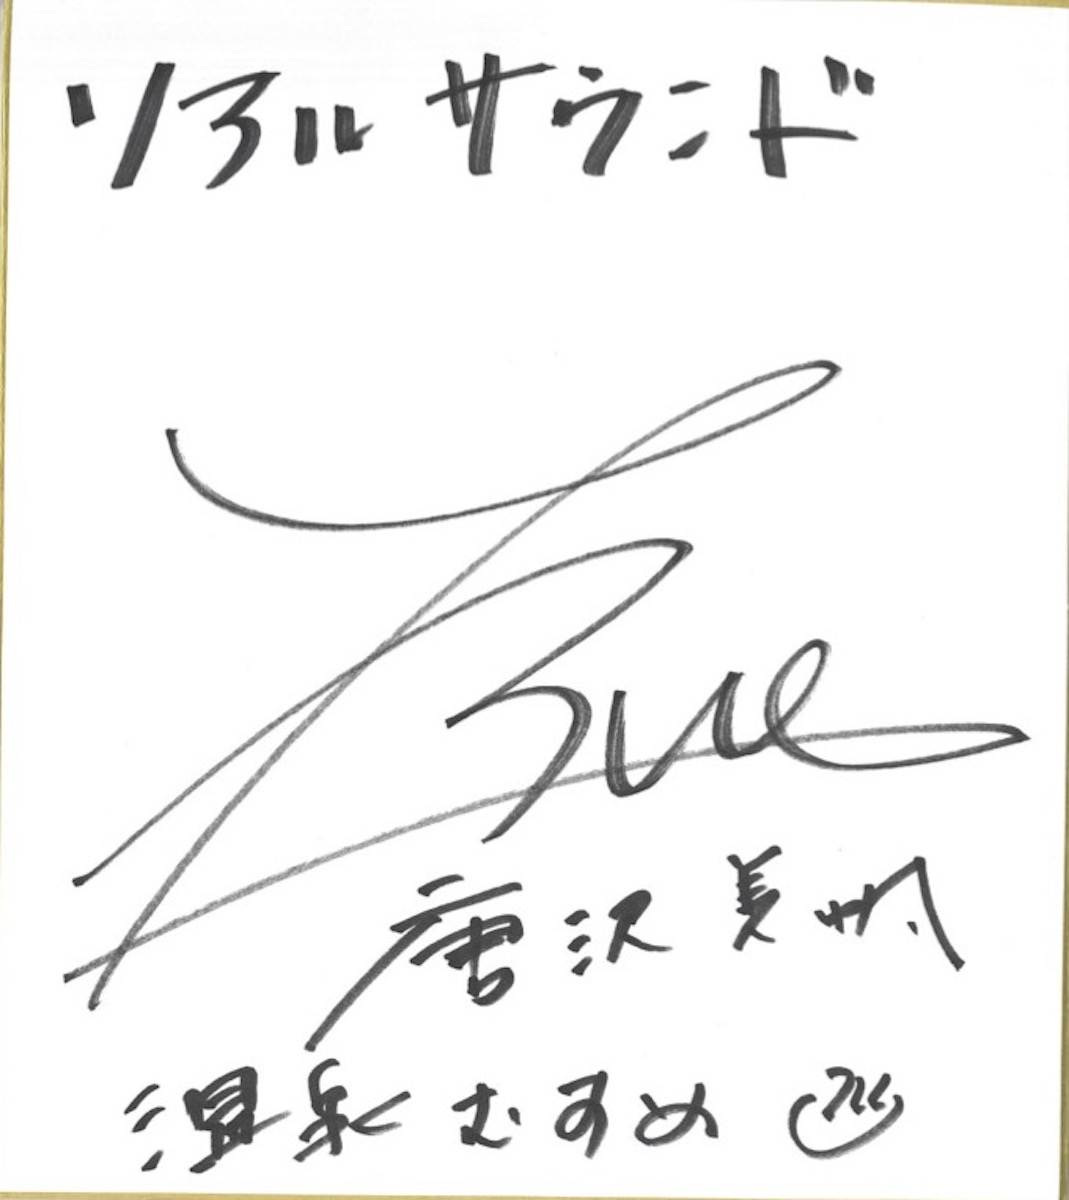 ソアルサウンド
True
唐沢美帆
温泉むすめ